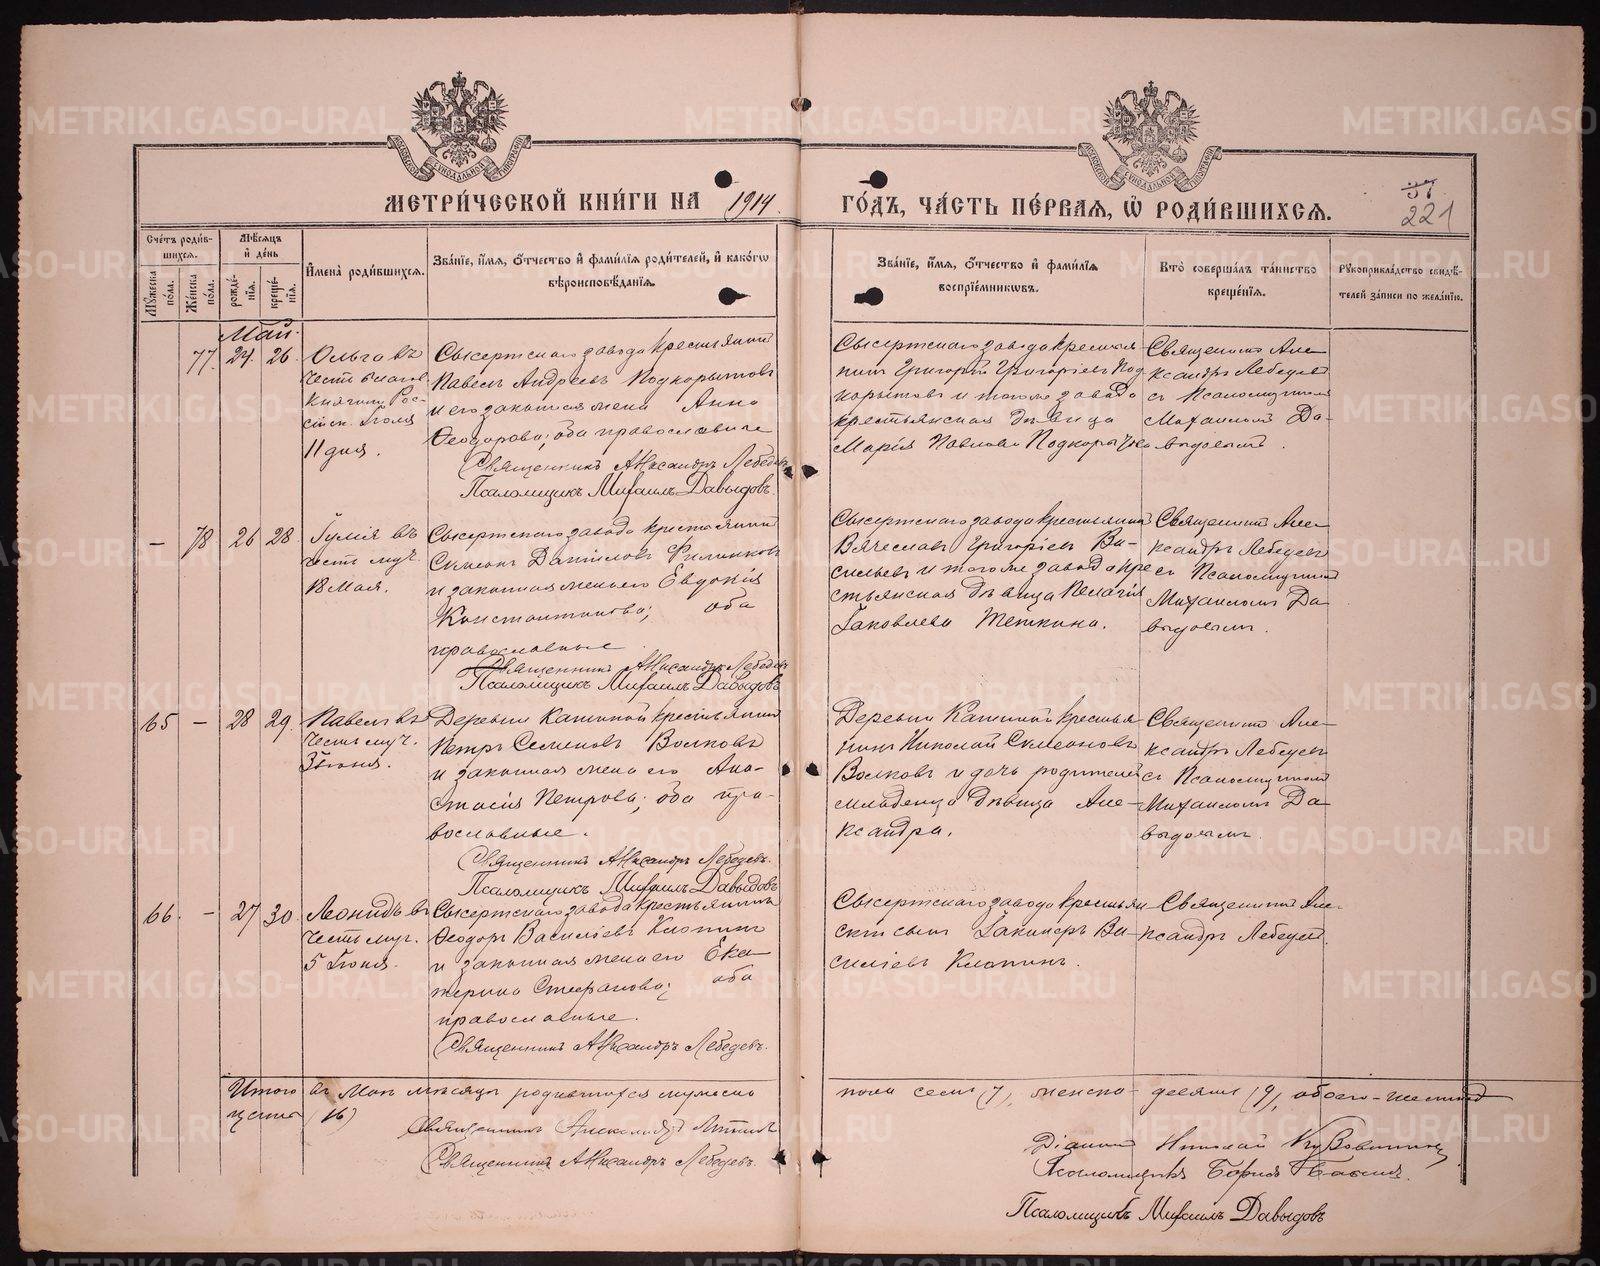 МЕТРИ́ЧЕСКОЙ КНИ́ГИ НА 1914
ГО́ДЪ, ЧА́СТЬ ПЕ́РВАЯ, Ѡ РОДИ́ВШИХСЯ.
37
221
Сче́тъ роди́в-
шихся.
Мѹ́жеска по́ла.
Же́нска по́ла.
Мѣ́сяцъ
и де́нь
рожде́нїя.
креще́нїя.
Имена̀ роди́вшихся.
Зва́нїе, и́мя, о́тчество и фами́лїя роди́телей, и како́гѡ
вѣроисповѣ́данїя.
Зва́нїе, и́мя, о́тчество и фами́лїя
воспрїе́мникѡвъ.
Кто̀ соверша́лъ та́инство
креще́нїя.
Рѹкоприкла́дство свидѣ́-
телей за́писи по жела́нїю.
Май.
77. 24. 26
Ольга въ
честь благов.
Княгини Рос-
сійск. Іюля
11 дня.
Сысертскаго завода крестьянинъ
Павелъ Андреевъ Подкорытовъ
и его законная жена Анна
Ѳеодорова; оба православные
Священникъ Александръ Лебедевъ
Псаломщикъ Михаилъ Давыдовъ.
Сысертскаго завода крестья-
нинъ Григорій Григоріевъ Под-
корытовъ и того же завода
крестьянская дѣвица
Марія Павлова Подкорытова
Священникъ Але-
ксандръ Лебедевъ
съ Псаломщикомъ
Михаиломъ Да-
выдовымъ.
— 78 26 28
Іулія въ
честь муч.
18 Мая.
Сысертскаго завода крестьянинъ
Симеонъ Даниловъ Филинковъ
и законная жена его Евдокія
Константинова; оба
православные
Священникъ Александръ Лебедевъ
Псаломщикъ Михаилъ Давыдовъ
Сысертскаго завода крестьянинъ
Вячеславъ Григоріевъ Ва-
сильевъ и того же завода кре-
стьянская дѣвица Пелагія
Іаковлева Теткина.
Священникъ Але-
ксандръ Лебедевъ
съ Псаломщикомъ
Михаиломъ Да-
выдовымъ.
65 — 28 29.
Павелъ въ
честь муч.
3 Іюня.
Деревни Кашиной крестьянинъ
Петръ Семеновъ Волковъ
и законная жена его Ана-
стасія Петрова; оба пра-
вославные.
Священникъ Александръ Лебедевъ.
Псаломщикъ Михаилъ Давыдовъ
Деревни Кашиной крестья-
нинъ Николай Симеоновъ
Волковъ и дочь родителей
младенца дѣвица Але-
ксандра.
Священникъ Але-
ксандръ Лебедевъ
съ Псаломщикомъ
Михаиломъ Да-
выдовымъ.
66. — 27 30.
Леонидъ въ
честь муч.
5 Іюня.
Сысертскаго завода крестьянинъ
Ѳеодоръ Василіевъ Клопинъ
и законная жена его Ека-
терина Стефанова; оба
православные.
Священникъ Александръ Лебедевъ.
Сысертскаго завода крестьян-
скій сынъ Василіевъ Клопинъ.
Священникъ Але-
ксандръ Лебедевъ.
Итого въ Маѣ мѣсяцѣ родившихся мужеска
пола семь (7), женска - девять (9), обоего - шестнад-
цать (16)
Священникъ Александръ
Священникъ Александръ Лебедевъ.
Діаконъ Николай
Псаломщикъ Борисъ
Псаломщикъ Михаилъ Давыдовъ
METRIKI.GASO-URAL.RU